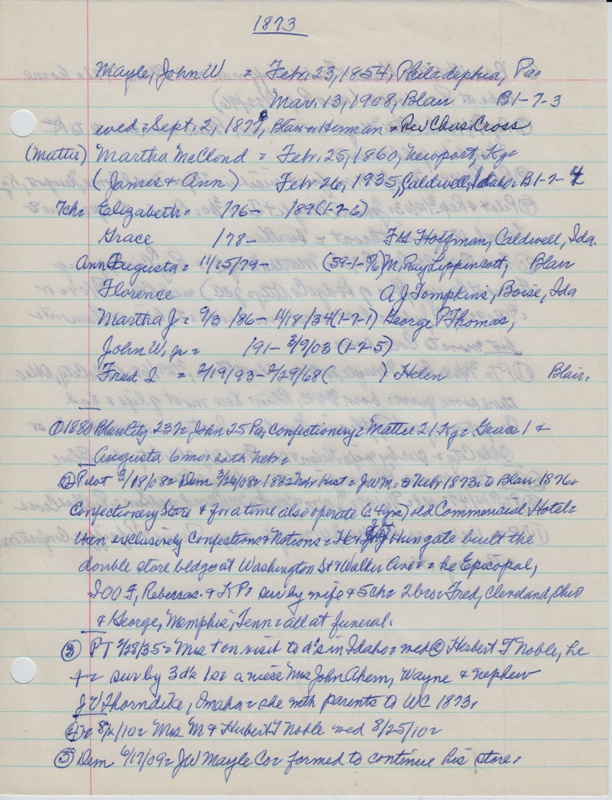 1873
Mayle, John W = Feb. 23, 1854, Philadelphia, Pa
Mar. 13, 1908, Blair B1-7-3
wed = Sept. 2, 1877, Blair = Herman = Rev Chas Cross
(Mattie) Martha McCloud = Feb. 25, 1860, Newport, Ky =
(James & Ann) Feb 26, 1935, Caldwell, Idaho = B1-7-4
7ch = Elizabeth = /76- 189(1-7-6)
Grace /78- F H Hoffman, Caldwell, Ida.
Ann Augusta = 11/25/79- (59-1-76) M. Ray Lippincott, Blair
Florence A J Tompkins, Boise, Ida
Martha J = 9/3/86- 11/18/34 (1-7-1) George P Thomas,
John W, jr = 191- 3/9/03 (1-7-5)
Fred I = 2/19/93- 2/29/68 ( ) Helen Blair.
① 1880 Blair City 23 = John 25 Pa, Confectionery = Mattie 21 Ky = Grace 1 &
Augusta 6 mos both Neb =
② Pilot 3/18/08 = Dem 3/26/08 = 1882 Neb Hist = J W M = to Neb 1873 to Blair 1876 =
Confectionery Store & for a time also operate old Commercial Hotel =
then exclusively Confections & Notions = He & Hungate built the
double store bldgs at Washington St & Walker Ave = he Episcopal,
IOOF, Rebeccas & K P = sur by wife & 5ch = 2bro = Fred, Cleveland, Ohio
& George, Memphis, Tenn = all at funeral.
③ PT 2/28/35 = Mrs + on visit to d's in Idaho = wed ② Hebert T Noble, he
+ = sur by 3d's 1s = a niece Mrs John Ahern, Wayne & nephew
J W Thorndike, Omaha = she with parents to WC 1873.
④ 8/ /10 = Mrs M & Hubert T Noble wed 8/25/10 =
⑤ Dem 6/17/09 = J W Mayle Co = formed to continue his store.